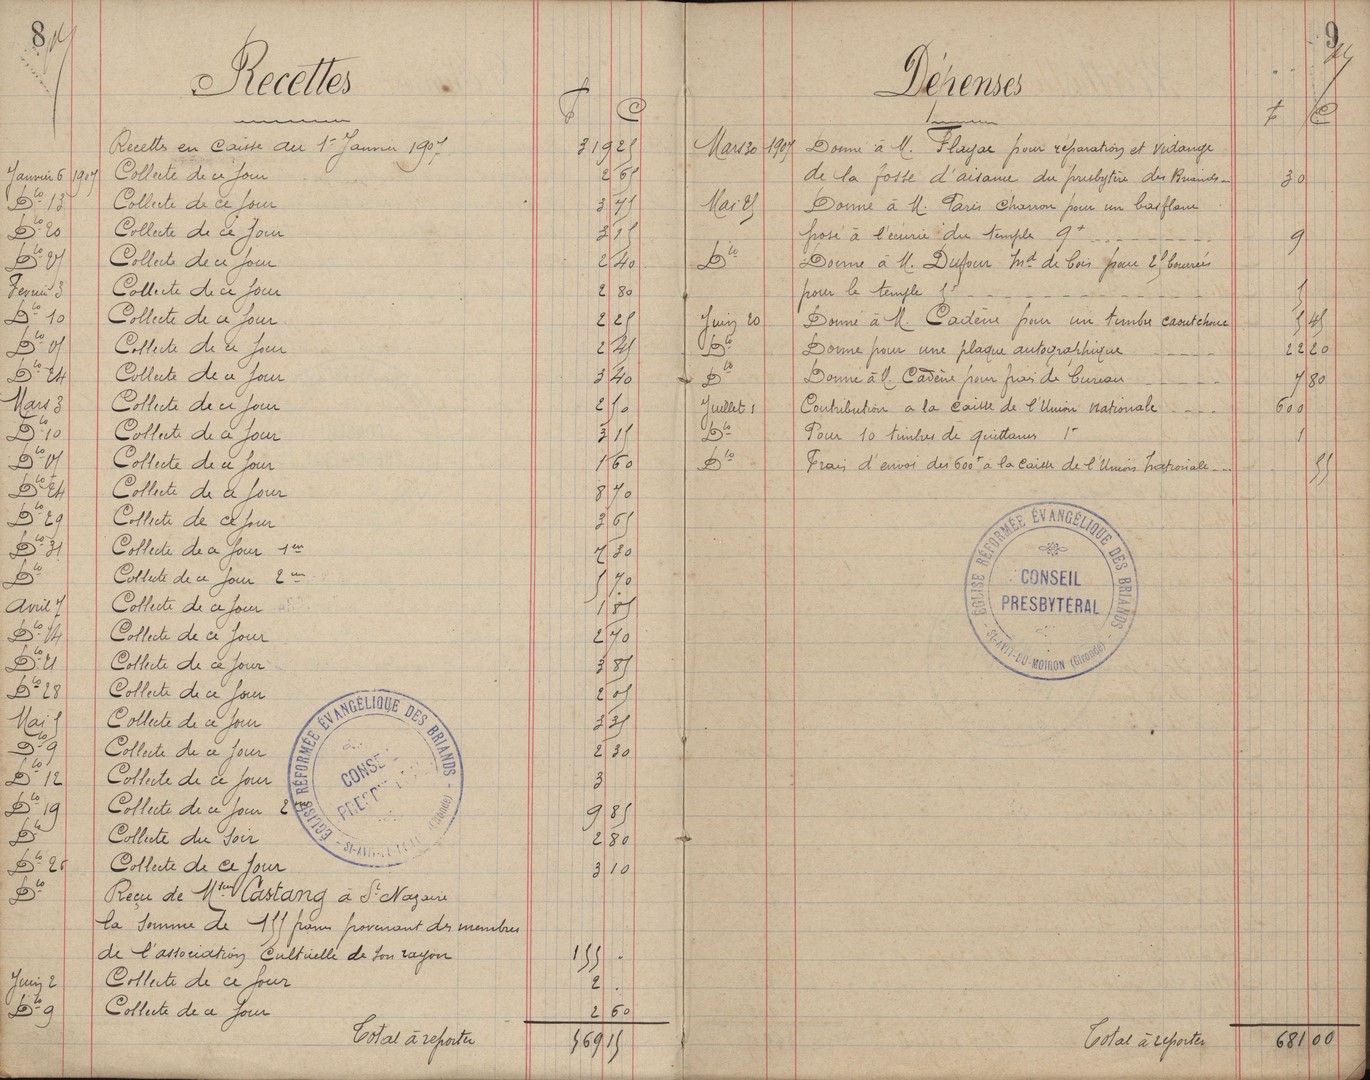 8
Recettes
F C
Recettes en caisse au 1er Janvier 1907 319 25
Janvier 6 1907 Collecte de ce Jour 2 65
Dto 13 Collecte de ce Jour 3 75
Dto 20 Collecte de ce Jour 3 15
Dto 27 Collecte de ce Jour 2 40
Fevrier 3 Collecte de ce Jour 2 80
Dto 10 Collecte de ce Jour 2 25
Dto 17 Collecte de ce Jour 2 45
Dto 24 Collecte de ce Jour 3 40
Mars 3 Collecte de ce Jour 2 50
Dto 10 Collecte de ce Jour 3 15
Dto 17 Collecte de ce Jour 1 60
Dto 24 Collecte de ce Jour 8 70
Dto 29 Collecte de ce Jour 3 65
Dto 31 Collecte de ce Jour 1er 7 30
Dto Collecte de ce Jour 2em 5 70
Avril 7 Collecte de ce Jour 1 85
Dto 14 Collecte de ce Jour 2 70
Dto 21 Collecte de ce Jour 3 85
Dto 28 Collecte de ce Jour 2 05
Mai 5 Collecte de ce Jour 3 35
Dto 9 Collecte de ce Jour 2 30
Dto 12 Collecte de ce Jour 3
Dto 19 Collecte de ce Jour 2 9 85
Dto Collecte du Soir 2 80
Dto 26 Collecte de ce Jour 3 10
Dto Reçu de Castang à St Nazaire
la somme de 155 francs provenant des membres
de l'association Cultuelle de son rayon 155 .
Juin 2 Collecte de ce Jour 2 .
Dto 9 Collecte de ce Jour 2 60
Total à reporter 569 15
ÉGLISE RÉFORMÉE ÉVANGÉLIQUE DES BRIANDS
CONSE
PRESBY
(Gironde)
9
Dépenses
F C
Mars 20 1907 Donné à M. Flayac pour réparation et vidange
de la fosse d'aisance du presbytère des Briands 30
Mai 25 Donné à M. Paris charron pour un basflanc
posé à l'écurie du temple 9f 9
Dto Donné à M. Dufour Md de bois pour 25 bourrées
pour le temple 5f 5
Juin 20 Donné à M. Cadène pour un timbre caoutchouc 5 45
Dto Donné pour une plaque autographique 22 20
Dto Donné à M. Cadène pour frais de bureau 7 80
Juillet 1 Contribution a la caisse de l'Union Nationale 600
Dto Pour 10 timbres de quittances 1f 1
Dto Frais d'envoi des 600f à la caisse de l'Union Nationale 55
ÉGLISE RÉFORMÉE ÉVANGÉLIQUE DES BRIANDS
CONSEIL
PRESBYTÉRAL
St-AVIT-DU-MOIRON (Gironde)
Total à reporter 681 00